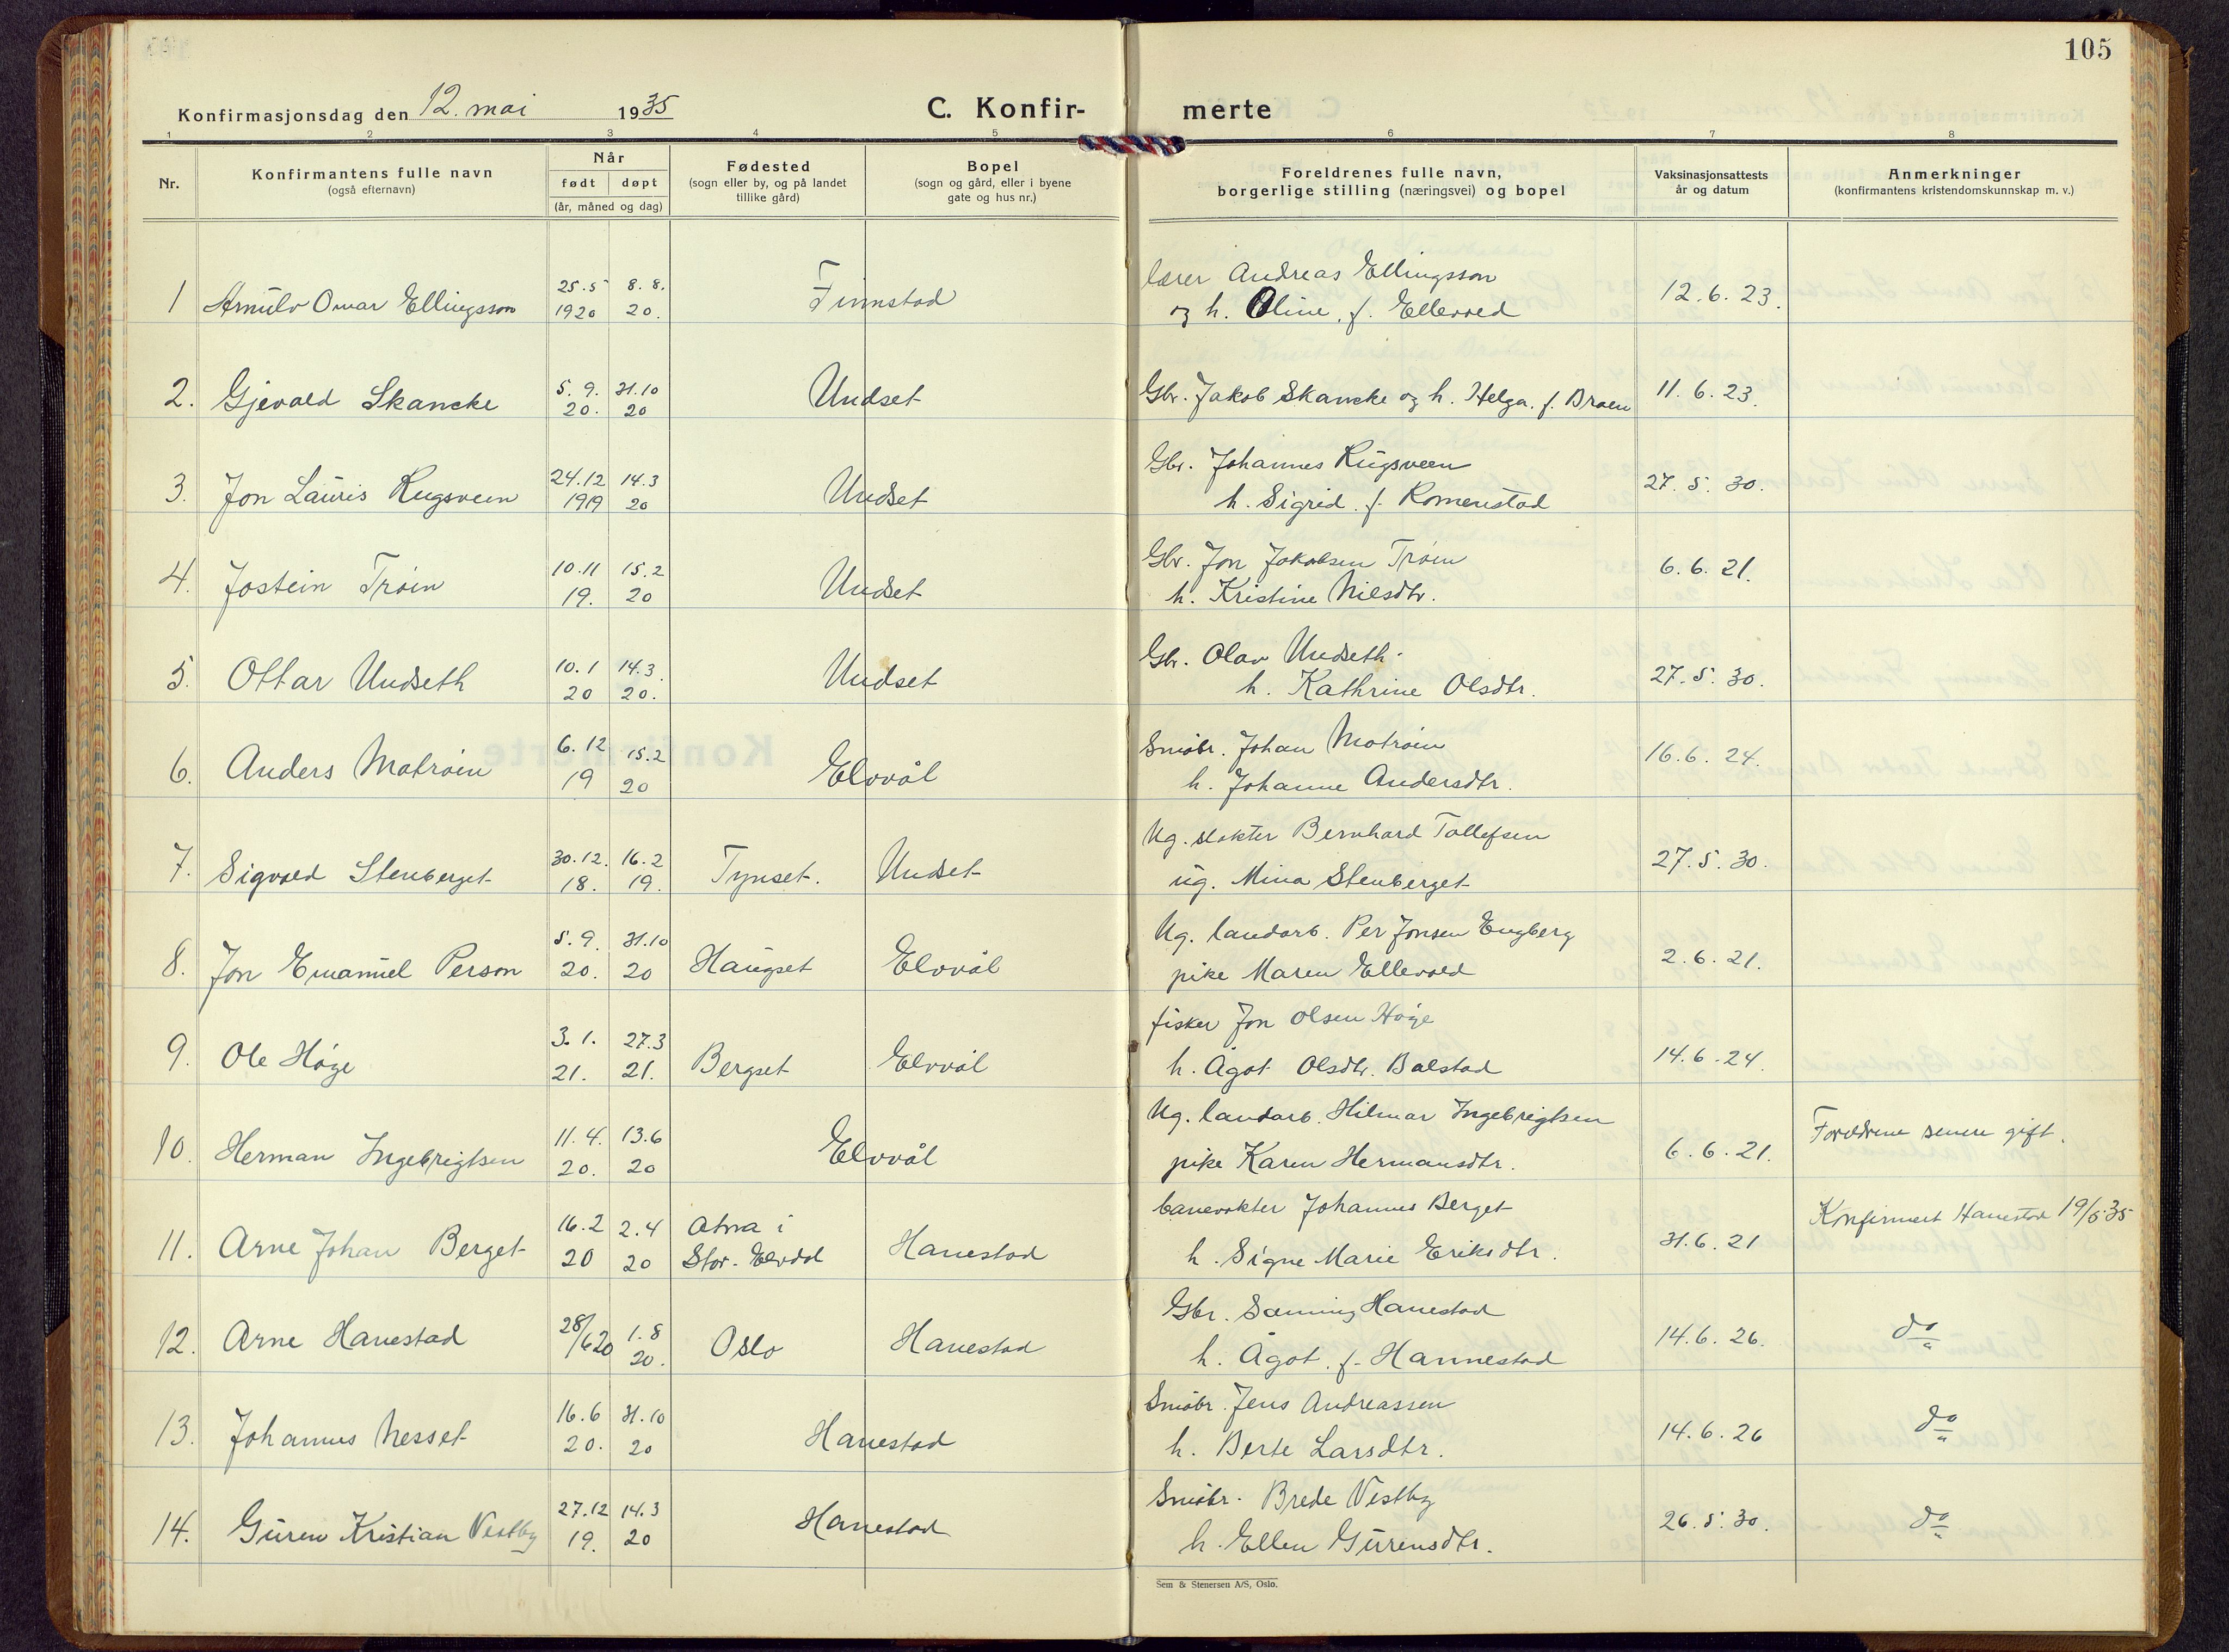 105
Konfirmasjonsdag den 12. mai 1935
C. Konfirmerte
1 2 3 4 5 6 7 8
Nr.
Konfirmantens fulle navn
(også efternavn)
Når
født døpt
(år, måned og dag)
Fødested
(sogn eller by, og på landet
tillike gård)
Bopel
(sogn og gård, eller i byene
gate og hus nr.)
Foreldrenes fulle navn,
borgerlige stilling (næringsvei) og bopel
Vaksinasjonsattests
år og datum
Anmerkninger
(konfirmantens kristendomskunnskap m. v.)
25.5 8.8. lærer Andreas Ellingsson
1 Arnulv Omar Ellingsson 1920 20. Finnstad og h. Oline, f. Ellevold 12.6.23.
5.9. 31.10
2. Gjevald Skancke 20. 20 Undset Gbr. Jakob Skancke og h. Helga. f. Broen 11.6.23.
24.12 14.3 Gbr. Johannes Rugsveen
3. Jon Lauris Rugsveen 1919 20 Undset h. Sigrid. f. Romenstad 27.5.30.
10.11 15.2 Gbr. Jon Jakobsen Trøen
4. Jostein Trøen 19. 20 Undset h. Kristine Nilsdtr. 6.6.21.
10.1 14.3. Gbr. Olav Undseth
5. Ottar Undseth 20 20. Undset h. Kathrine Olsdtr. 27.5.30.
6.12 15.2 Småbr. Johan Motrøen
6. Anders Motrøen 19 20 Elvvål h. Johanne Andersdtr. 16.6.24.
30.12. 16.2 Ug. slakter Bernhard Tollefsen
7. Sigvald Stenberget 18. 19. Tynset. Undset ug. Mina Stenberget 27.5.30.
5.9. 31.10 Ug. landarb. Per Jonsen Engberg
8. Jon Emanuel Person 20. 20 Haugset Elvvål pike Maren Ellevold 2.6.21.
3.1. 27.3 fisker Jon Olsen Høye
9. Ole Høye 21. 21. Bergset Elvvål h. Ågot Olsdtr. Balstad 14.6.24.
11.4. 13.6 Ug. landarb. Hilmar Ingebrigtsen Foreldrene senere gift.
10. Herman Ingebrigtsen 20. 20 Elvvål pike Karen Hermansdtr. 6.6.21.
16.2 2.4 Atna i banevokter Johannes Berget Konfirmert Hanestad 19/5 35
11. Arne Johan Berget 20 20 Stor-Elvdal Hanestad h. Signe Marie Eriksdtr. 31.6.21
28/6 20 1.8 Gbr. Sæming Hanestad
12. Arne Hanestad 20. Oslo Hanestad h. Ågot, f. Hannestad 14.6.26. do
16.6 31.10 Småbr. Jens Andreassen
13. Johannes Nesset 20. 20 Hanestad h. Berte Larsdtr. 14.6.26 do
27.12 14.3 Småbr. Brede Vestby
14. Guren Kristian Vestby 19. 20 Hanestad h. Ellen Gurensdtr. 26.5.30. do
Sem & Stenersen A/S, Oslo.